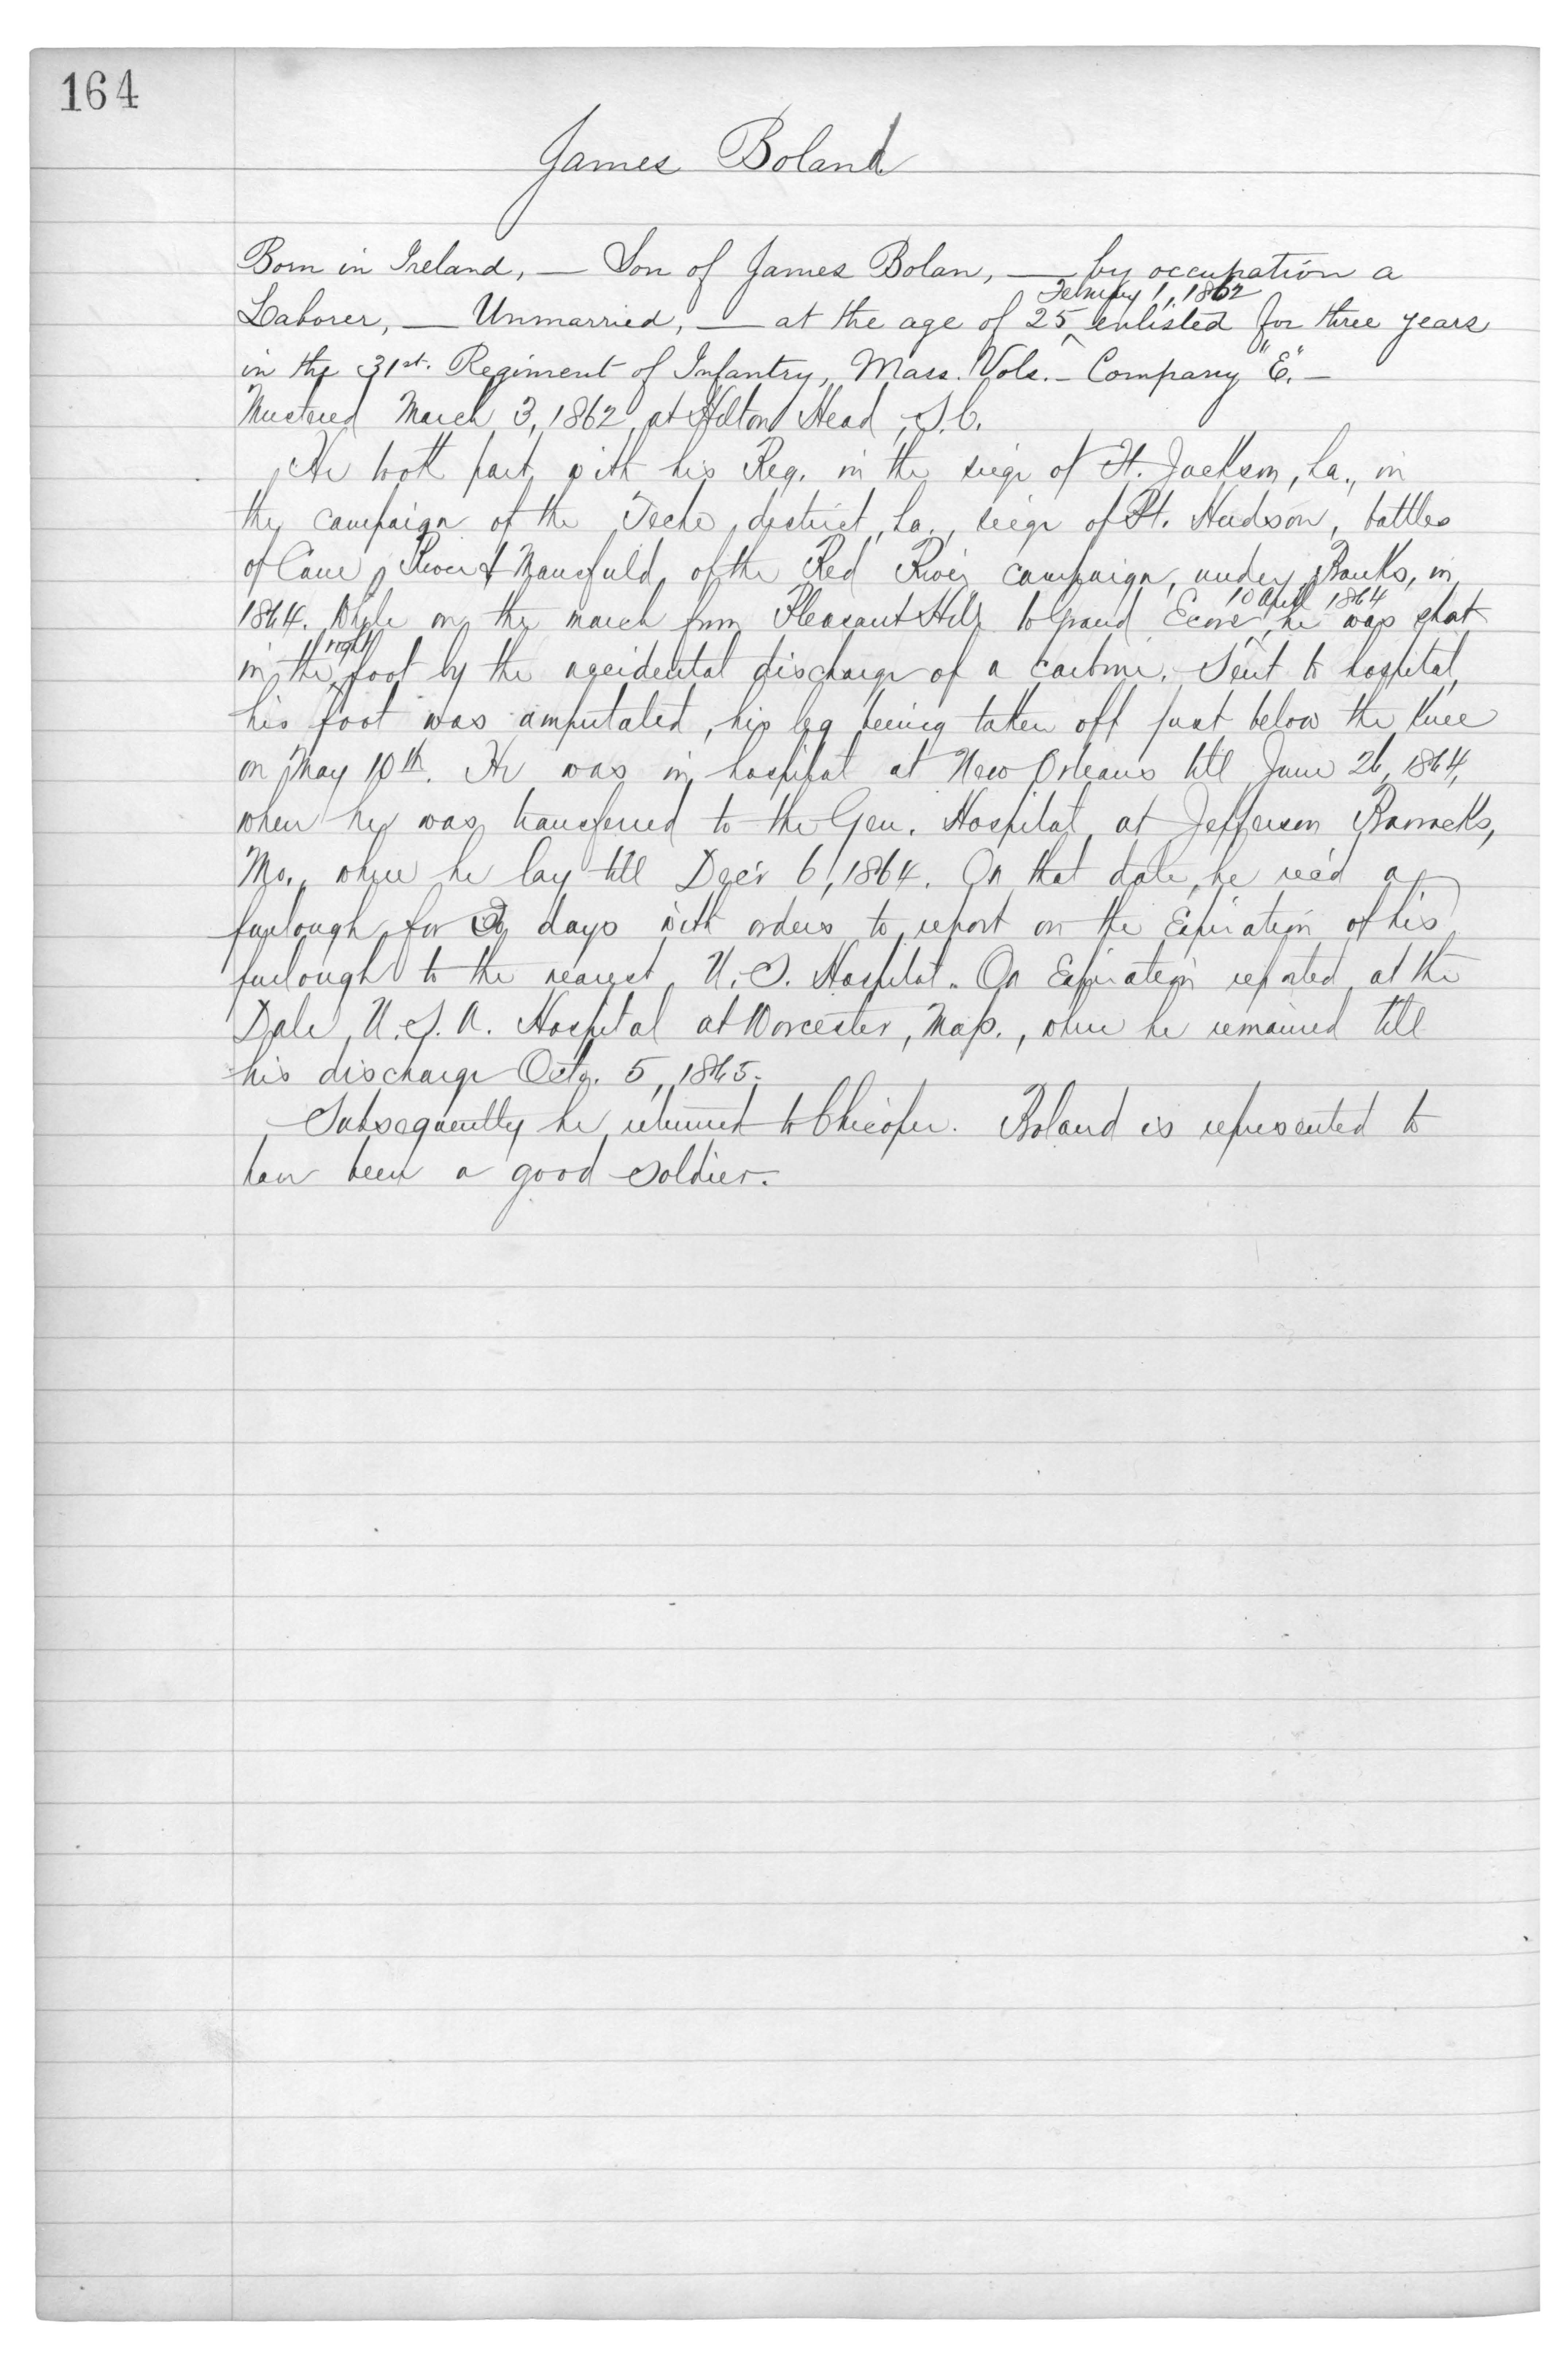 164
James Boland
Born in Ireland, — Son of James Bolan, — by occupation a
February 1, 1862
Laborer, — Unmarried, — at the age of 25 ^ enlisted for three years
in the 31st. Regiment of Infantry, Mass. Vols. – Company "E." –
Mustered March 3, 1862, at Hilton Head, S.C.
He took part with his Reg. in the siege of Ft. Jackson, La., in
the campaign of the Teche district, La., siege of Pt. Hudson, battles
of Cane River & Mansfield, of the Red River campaign, under Banks, in
10 April 1864
1864. While on the march from Pleasant Hill to Grand Ecore ^ he was shot
right
in the ^ foot by the accidental discharge of a carbine. Sent to hospital,
his foot was amputated, his leg being taken off just below the knee
on May 10th. He was in hospital at New Orleans till June 26, 1864,
when he was transferred to the Gen. Hospital, at Jefferson Barracks,
Mo., where he lay till Dec'r 6, 1864. On that date, he rec'd a
furlough for days with orders to report on the Expiration of his
furlough to the nearest U.S. Hospital. On Expiration reported at the
Dale, U.S.A. Hospital at Worcester, Mass., where he remained till
his discharge Octo. 5, 1865.
Subsequently he returned to Chicopee. Boland is represented to
have been a good soldier.